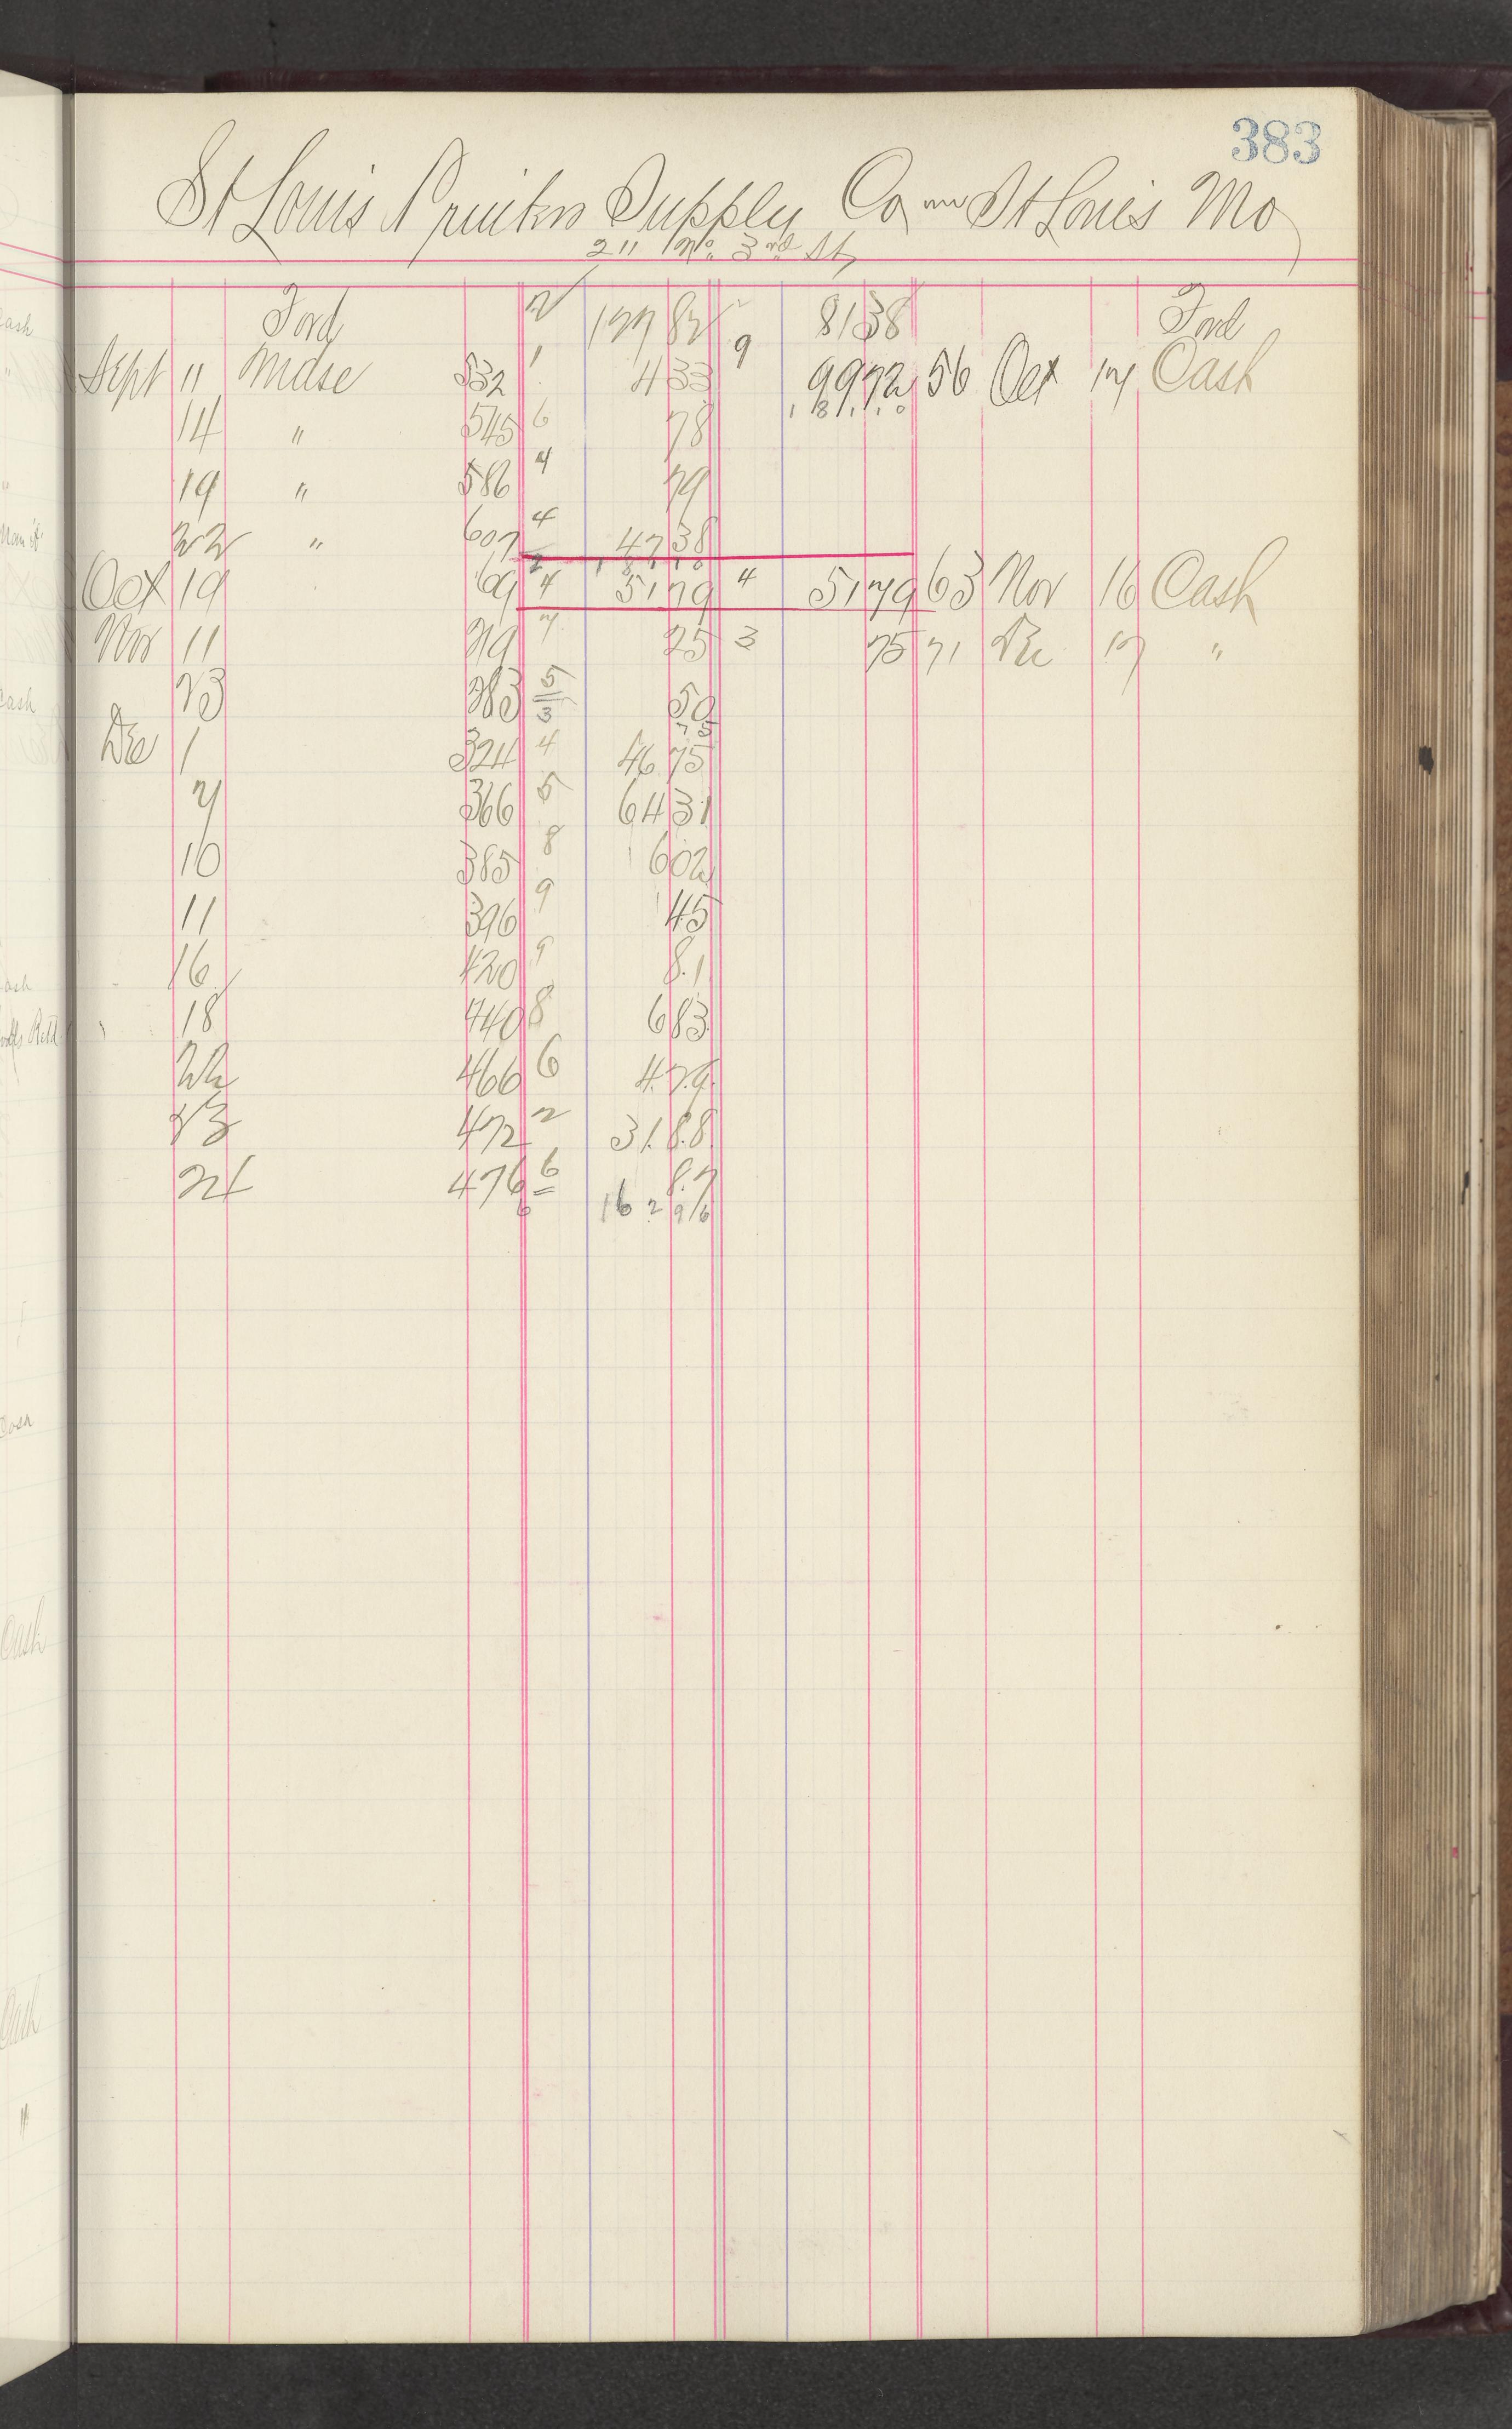 383
St Louis Printers Supply Co St Louis Mo
211 No. 3rd St
Ford 2 127 82 8138 Ford
Sept 11 Mdse 532 1 433 9 9972 56 Oct 17 Cash
14 " 545 6 78 1 81 10
19 " 586 4 79
22 " 607 4 4738
Oct 19 69 4 5179 4 5179 63 Nov 16 Cash
Nov 11 219 7 25 3 75 71 Dec 17 "
23 283 5 50
3 75
Dec 1 324 4 4675
7 366 5 6431
10 385 8 602
11 396 9 45
16 420 9 81
18 440 8 683
22 466 6 479
23 472 2 3188
24 476 6 87
6 162 96